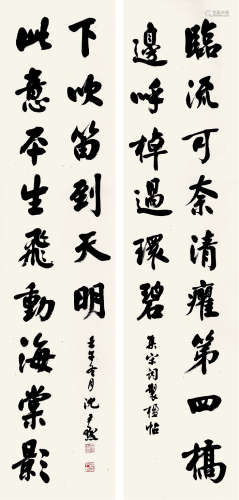 臨流可奈清癯第四橋
邊呼棹過環碧
集宋詞製楹帖
此意平生飛動海棠影
下吹笛到天明
沈尹默